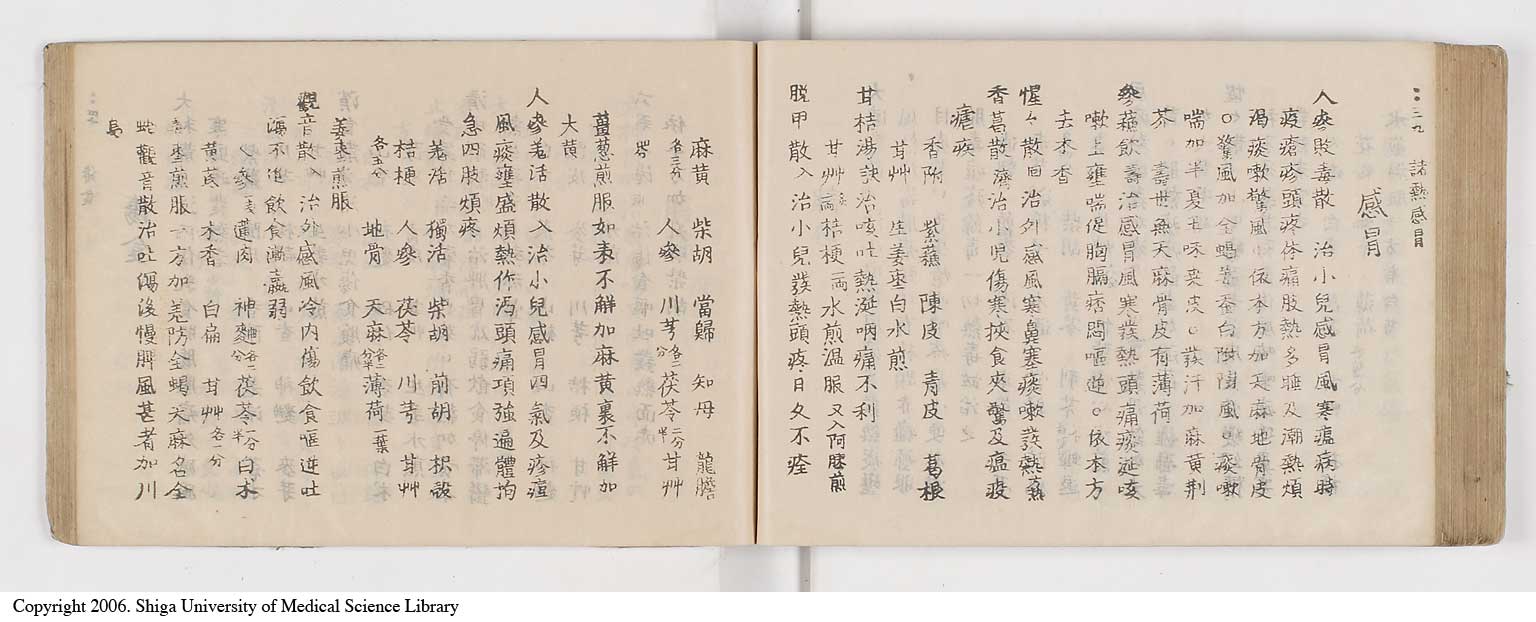 諸熱感冒
感冒
人參敗毒散 治小児感冒風寒瘟病時
疫瘡疹頭疼疼痛肢熱多睡及潮熱煩
渴痰嗽驚風 依本方加 麻地骨皮
驚風加全蝎姜蚕白附 風 痰嗽
喘加半夏 味 皮 發汗加麻黄荆
芥 壽世無天麻骨皮有薄荷
參蘓飲 壽 治感冒風寒發熱頭痛痰涎咳
嗽上壅喘促胸膈痞悶嘔逆 依本方
去木香
惺々散 回 治外感風寒鼻塞痰嗽發熱
香葛散 濟 治小児傷寒挾食夾驚及瘟疫
瘧疾
香附 紫蘓 陳皮 青皮 葛根
甘艸 生姜枣白水煎
甘桔湯 訣 治咳吐熱涎咽痛不利
甘艸 桔梗 水煎温服 又入阿膠煎
脱甲散 入 治小兒發熱頭疼日久不痊
麻黄 柴胡 當歸 知母 龍膽
各三分 人參 川芎 各二分 茯苓 二分半 甘艸
薑葱煎服如表不解加麻黄裏不解加
大黄
人參羗活散 入 治小兒感冒四氣及疹痘
風痰壅盛煩熱作渴頭痛項強遍體拘
急四肢煩疼
羗活 獨活 柴胡 前胡 枳殻
桔梗 人參 茯苓 川芎 甘艸
各五分 地骨 天麻 各二分半 薄荷 一葉
姜枣煎服
觀音散 入 治外感風冷内傷飲食嘔逆吐
瀉不進飲食漸羸弱
人參 蓮肉 神麹 各二分 茯苓 一分半 白术
黄芪 木香 白扁 甘艸 各一分
姜枣煎服 一方加羗防全蝎天麻名全
蛇觀音散治吐瀉後慢脾風甚者加川
烏